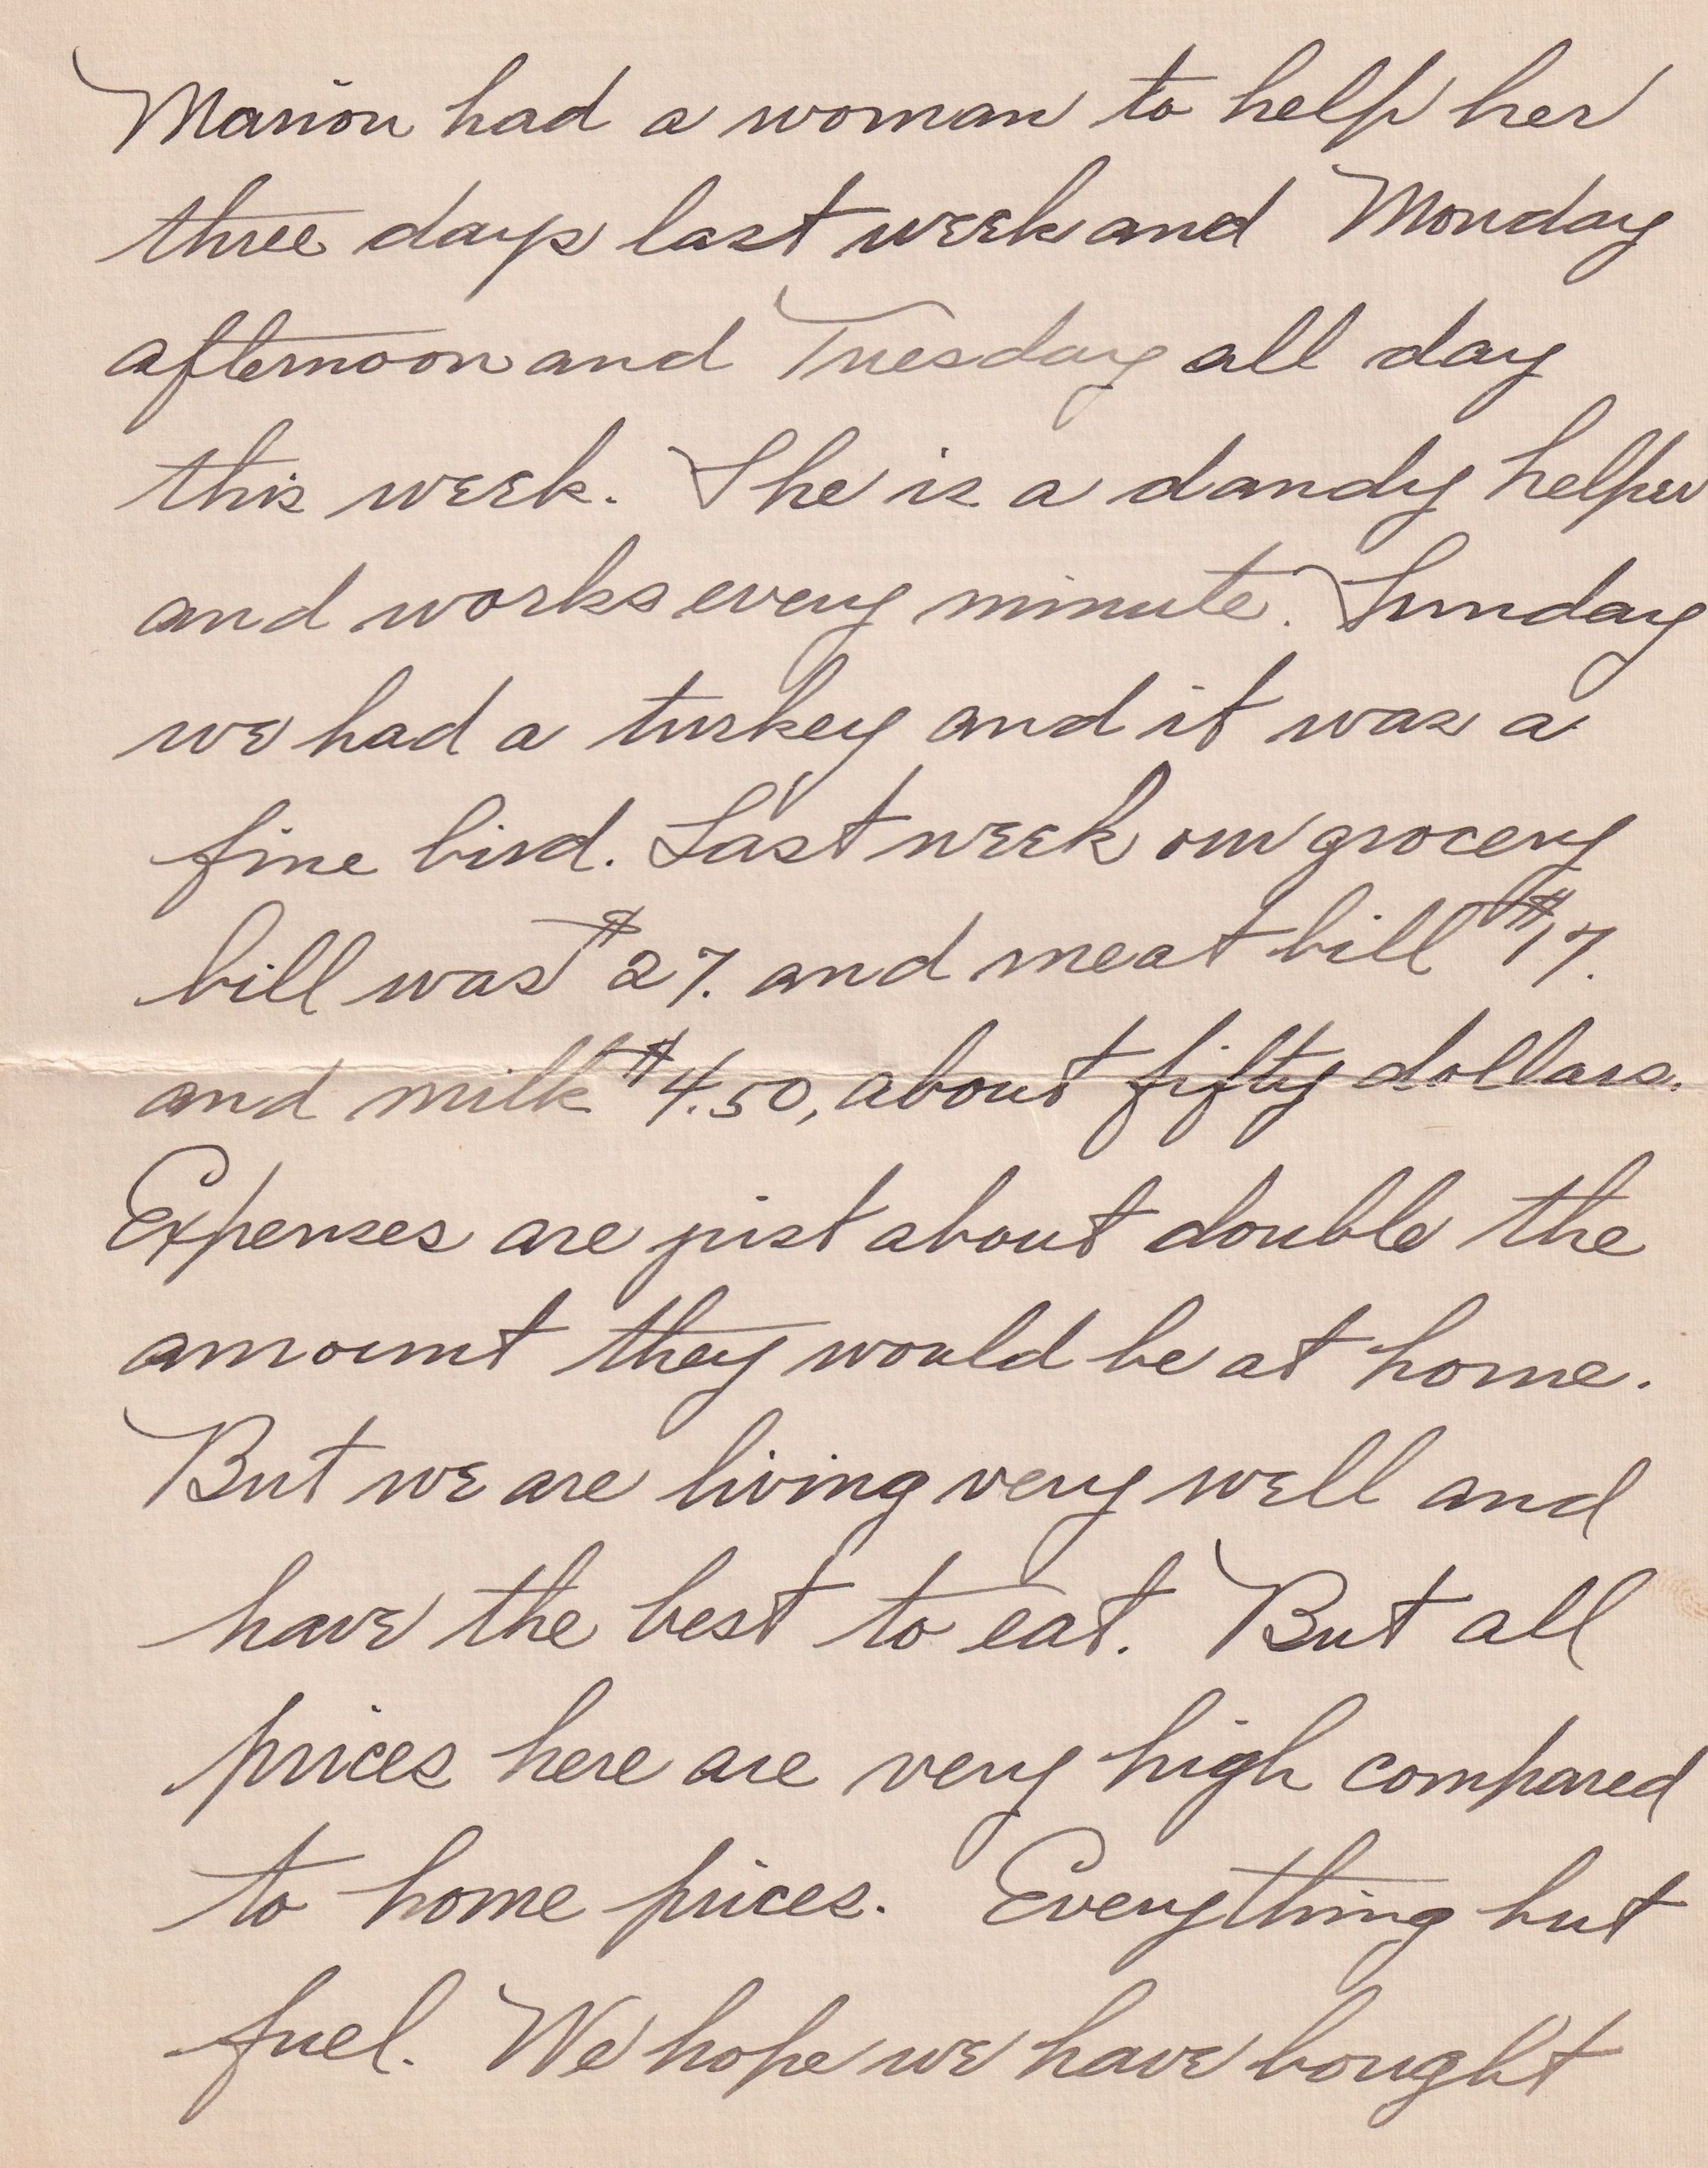 Marion had a woman to help her
three days last week and Monday
afternoon and Tuesday all day
this week. She is a dandy helper
and works every minute. Sunday
we had a turkey and it was a
fine bird. Last week our grocery
bill was $27. and meat bill $17.
and milk $4.50, about fifty dollars.
Expenses are just about double the
amount they would be at home.
But we are living very well and
have the best to eat. But all
prices here are very high compared
to home prices. Everything but
fuel. We hope we have bought